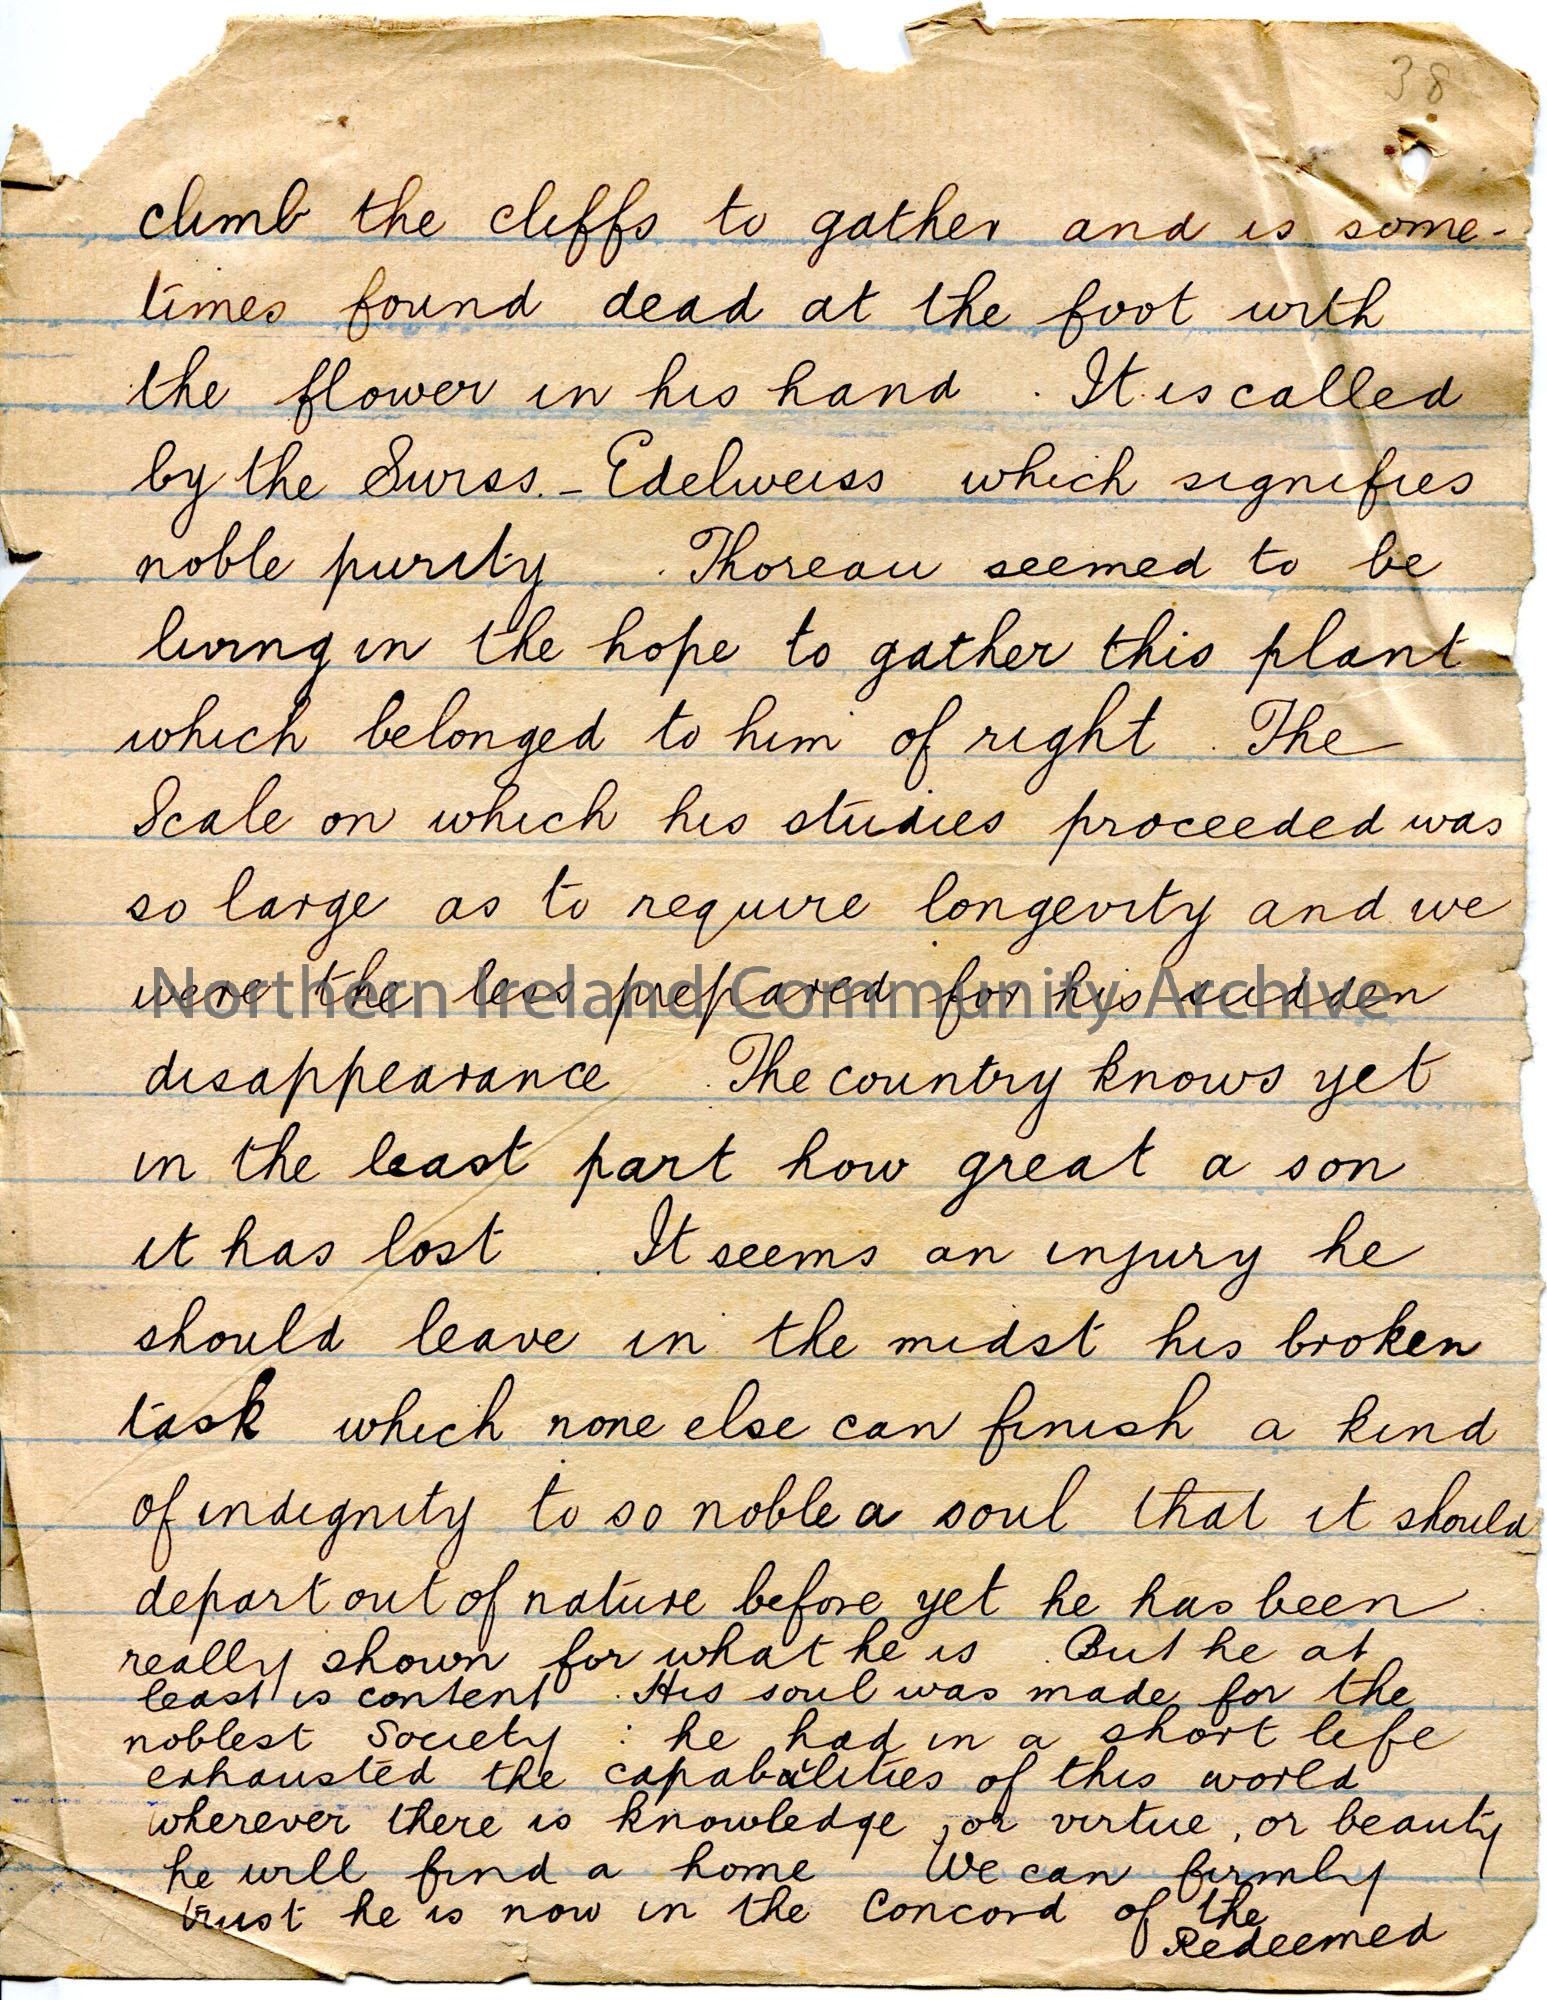 38
climb the cliffs to gather and is some-
times found dead at the foot with
the flower in his hand . It is called
by the Swiss. - Edelweiss which signifies
noble purity . Thoreau seemed to be
living in the hope to gather this plant
which belonged to him of right . The
Scale on which his studies proceeded was
so large as to require longevity and we
were the less prepared for his sudden
Northern Ireland Community Archive
disappearance . The country knows yet
in the least part how great a son
it has lost . It seems an injury he
should leave in the midst his broken
task which none else can finish a kind
of indignity to so noble a soul that it should
depart out of nature before yet he has been
really shown for what he is . But he at
least is content . His soul was made for the
noblest Society : he had in a short life
exhausted the capabilities of this world
wherever there is knowledge , or virtue , or beauty
he will find a home We can firmly
trust he is now in the Concord of the
Redeemed